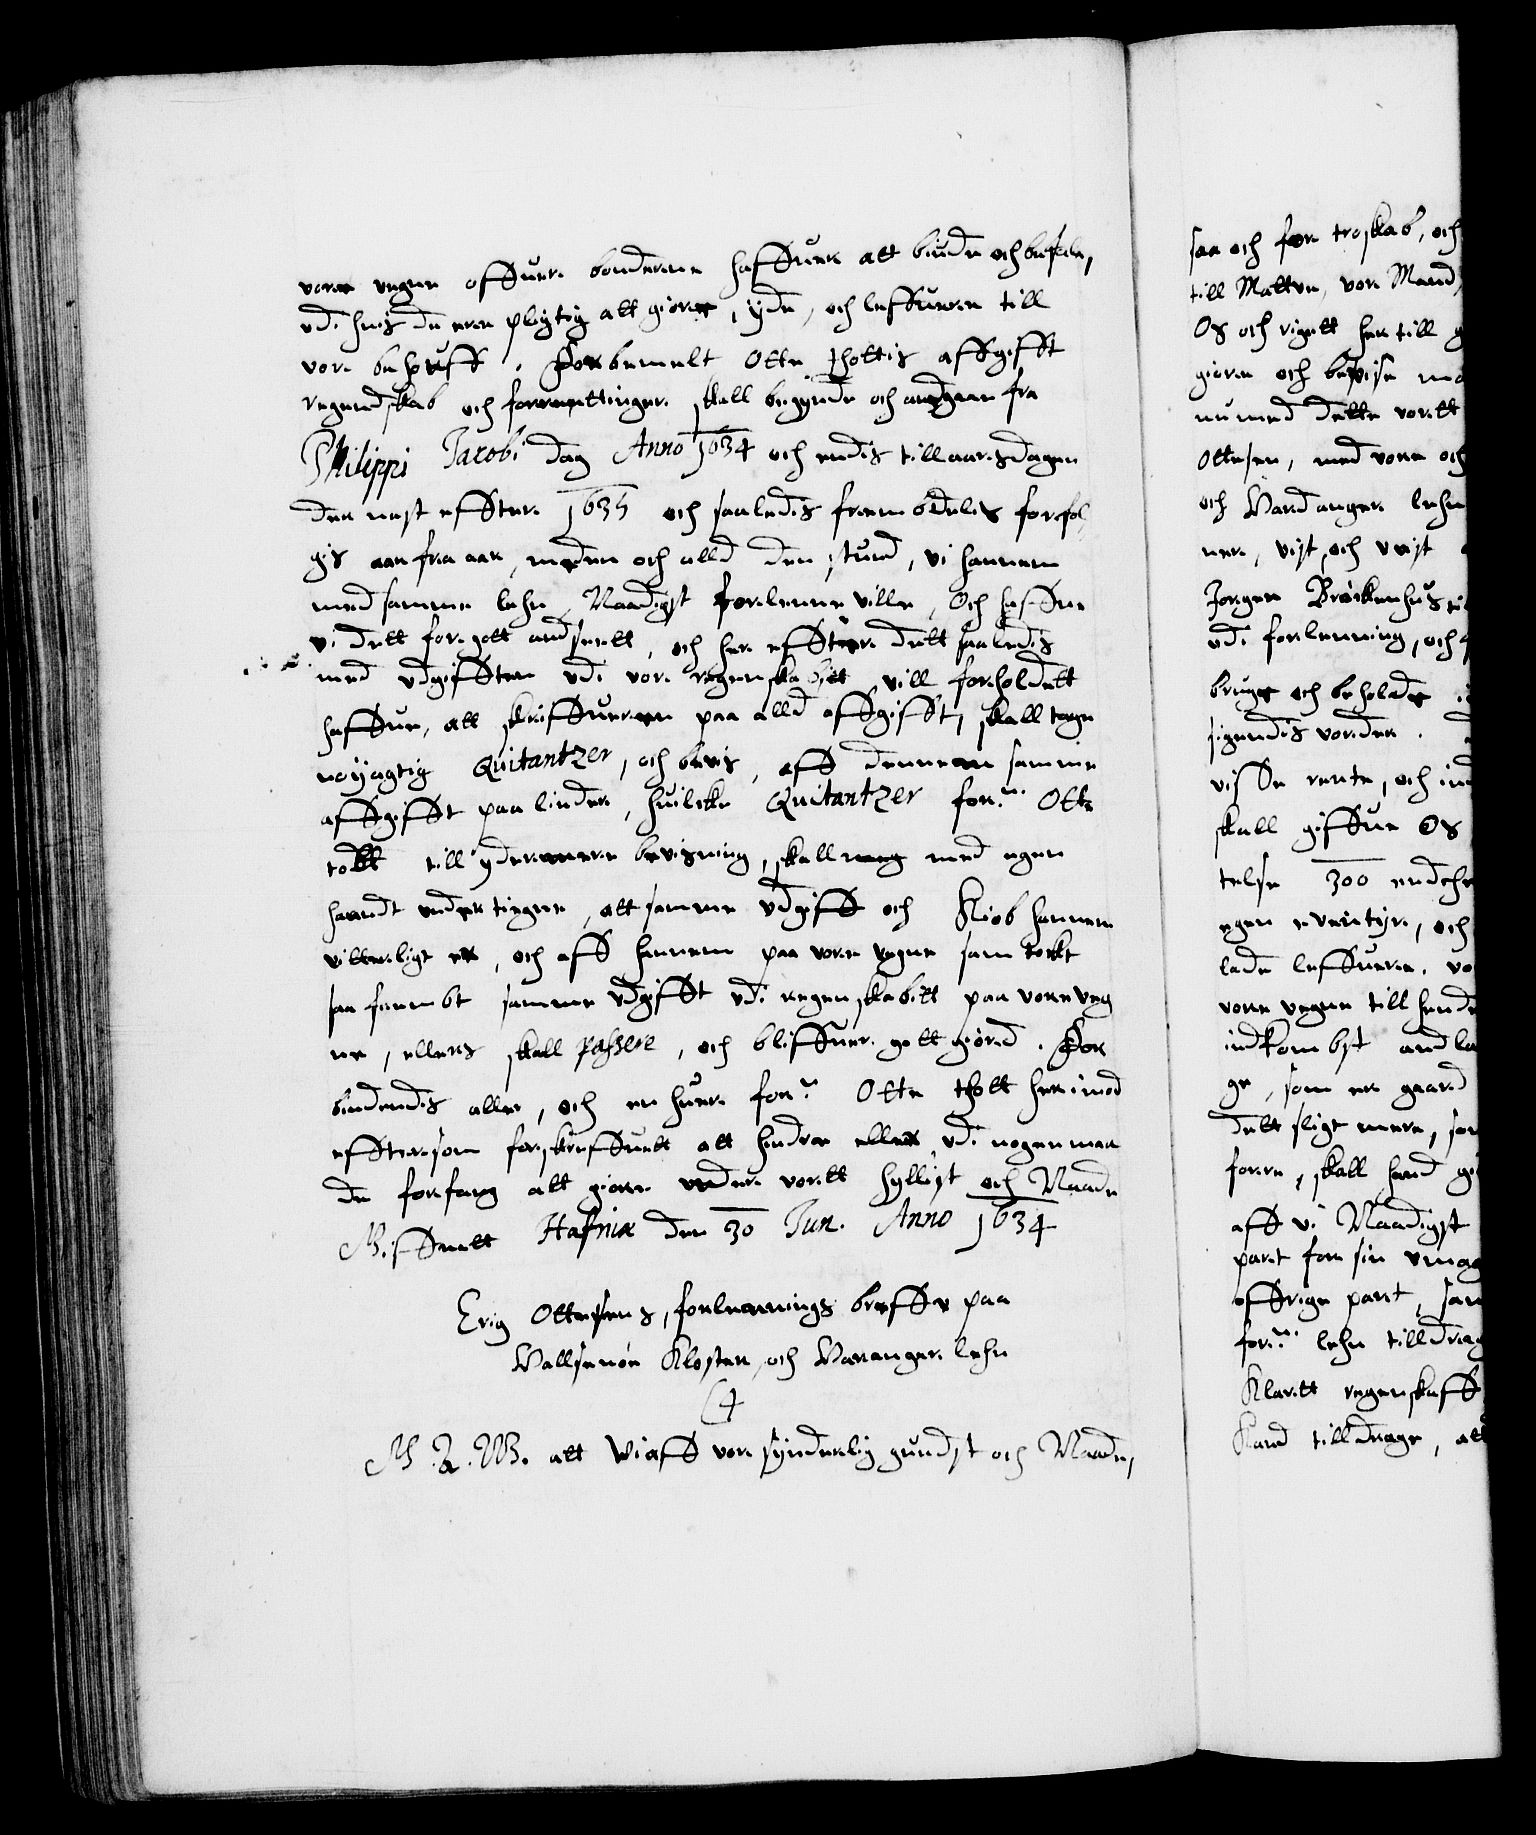 vore vegne offuer bønderne haffuer att biude och befale,
udi huis de ere pligtig att giøre, yde, och leffuere till
vor behoff. Forbemelt Otte Thottis affgifft
regendskab och forrettinger skall begynde och andgaae fra
Philippi Jacobi dag Anno 1634 och endis till aarsdagen
der nest effter 1635 och saaledis frembdelis forføl
gis aar fra aar, meden och alld den stund, vi hannem
med samme lehn, Naadigst forlenne ville, Och haffue
vi dett for gott andseett, och her effter dett saaledis
med udgifften udi vor regenskabitt vill forholdett
haffue, att skriffueren paa alld affgifft, skall tage
nøyagtig Quitantzer, och bevis, aff dennem samme
affgifft paalinder, huilcke Quitantzer forne Otte
tott till ydermere bevisning, skall med egen
haandt undertiegne, att samme udgifft och Kiøb hannem
vitterligt er, och aff hannem paa vore vegne samtockt
saa frembt samme udgifft udi regenskabitt paa vore veg
ne, ellers skall passere, och bliffuer gott giørd. For
biudendis alle, och en huer forne Otte thott her imod
efftersom forskreffuett att hindre eller udi nogen maa
de forfang att giøre under vortt hyllist och Naade
Hafniæ den 30 Jun. Anno 1634
Erig Ottesens, forlennings breff paa
Hallsnøe Kloster, och Hardanger lehn
C4
att Wi aff vor synderlig gundst och Naade,
saa och for troskab, och
till Mattrn, vor Mand,
Os och rigett her till g
giøre och bevise m
nu med dette vortt
Ottesen, med vore och
och Hardanger lehn
nere, vist och uvist
Jørgen Brockenhus ti
udi forlenning, och
bruge och beholde
sigendis vorder.
visse rente, och ind
skall giffue Os
telse 300 encke
egen eventyr, och
lade leffuere. vo
vore vegne till hende
indkombst andla
ge, som er gaard
dett sligt mere, som
føre, skall hand g
aff vi Naadigst
part for sin umag
øffrige part, sam
forne lehn till drag
Klartt regenskaff
Kand till drage, att